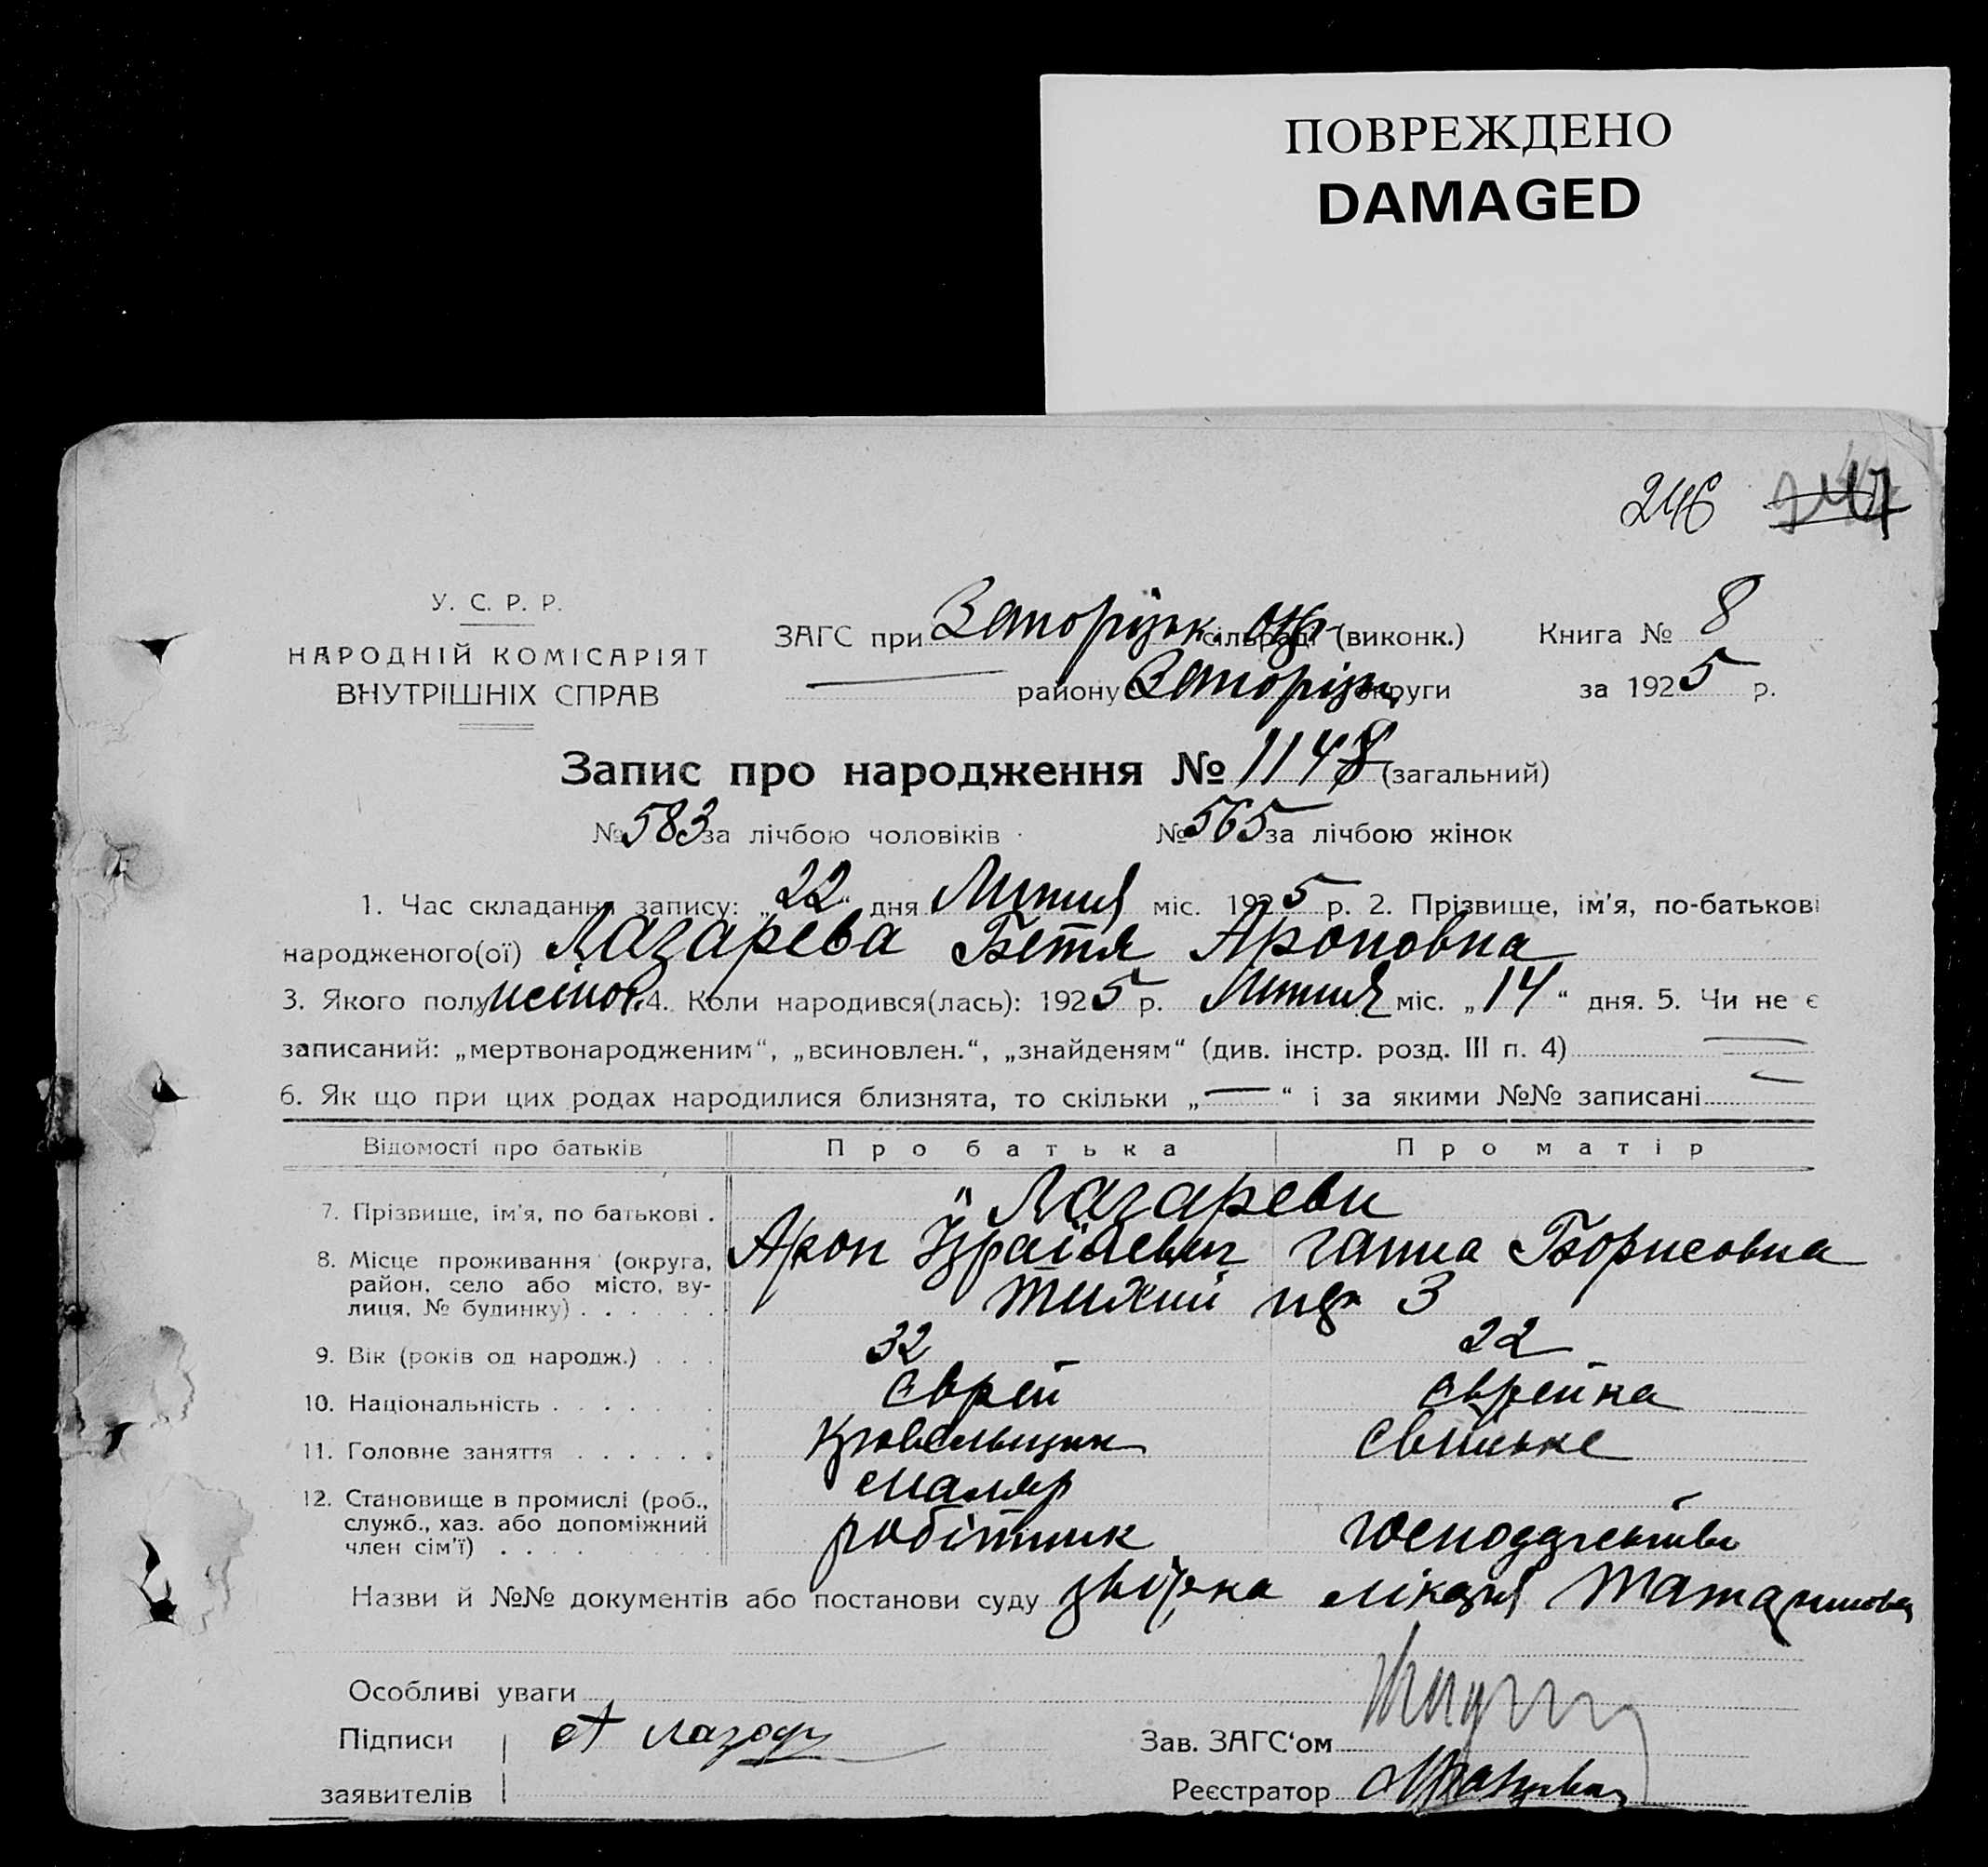 ПОВРЕЖДЕНО
DAMAGED
246 247
У. С. Р. Р.
НАРОДНІЙ КОМІСАРІЯТ
ВНУТРІШНІХ СПРАВ
ЗАГС при Запорізьк. окр. сільраді (виконк.) Книга № 8
району Запорізьк. округи за 1925 р.
Запис про народження № 1148 (загальний)
№ 583 за лічбою чоловіків № 565 за лічбою жінок
1. Час складання запису: „22“ дня Липня міс. 1925 р. 2. Прізвище, ім'я, по-батькові
народженого(ої) Лазарева Бетя Ароновна
3. Якого полу жіноч. 4. Коли народився(лась): 1925 р. Липня міс. „14“ дня. 5. Чи не є
записаний: „мертвонародженим“, „всиновлен.“, „знайденям“ (див. інстр. розд. III п. 4)
6. Як що при цих родах народилися близнята, то скільки „—“ і за якими №№ записані
Відомості про батьків Про батька Про матір
7. Прізвище, ім'я, по батькові . Лазареви
Арон Ізраїлевич Ганна Борисовна
8. Місце проживання (округа,
район, село або місто, ву-
лиця, № будинку) . . . . . . Тихий 3
9. Вік (років од народж.) . . . 32 22
10. Національність . . . . . . . єврей єврейка
11. Головне заняття . . . . . . Кровельщик свійське
маляр
12. Становище в промислі (роб.,
служб., хаз. або допоміжний
член сім'ї) . . . . робітник господарство
Назви й №№ документів або постанови суду звістка лікаря Татаринова
Особливі уваги
Підписи А Лазарев
заявителів
Зав. ЗАГС‘ом
Реєстратор